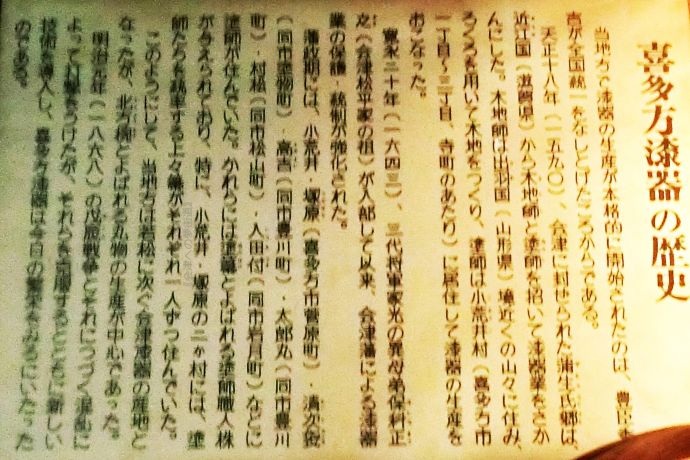 喜多方漆器の歴史
当地方で漆器の生産が本格的に開始されたのは、豊臣秀
吉が全国統一をなしとげたころからである。
天正十八年(一五九〇)、会津に封せられた蒲生氏郷は、
近江国(滋賀県)から木地師と塗師を招いて漆器業をさか
んにした。木地師は出羽国(山形県)境近くの山々に住み、
ろくろを用いて木地をつくり、塗師は小荒井村(喜多方市
一丁目~三丁目、寺町のあたり)に居住して漆器の生産を
おこなった。
寛永二十年(一六四三)、三代将軍家光の異母弟保科正
之(会津松平家の祖)が入部して以来、会津藩による漆器
業の保護・統制が強化された。
藩政期には、小荒井・塚原(喜多方市菅原町)・清次袋
(同市塗物町)・高吉(同市豊川町)・太郎丸(同市豊川
町)・村松(同市松山町)・入田付(同市岩月町)などに
塗師が住んでいた。かれらには塗軒とよばれる塗師職人株
が与えられており、特に、小荒井・塚原の二か村には、塗
師たちを統率する上々軒がそれぞれ一人ずつ住んでいた。
このようにして、当地方は若松に次ぐ会津漆器の産地と
なったが、北方椀とよばれる丸物の生産が中心であった。
明治元年(一八六八)の戊辰戦争とそれにつづく混乱に
よって打撃をうけたが、それらを克服するとともに新しい
技術を導入し、喜多方漆器は今日の繁栄をみるにいたった
のである。